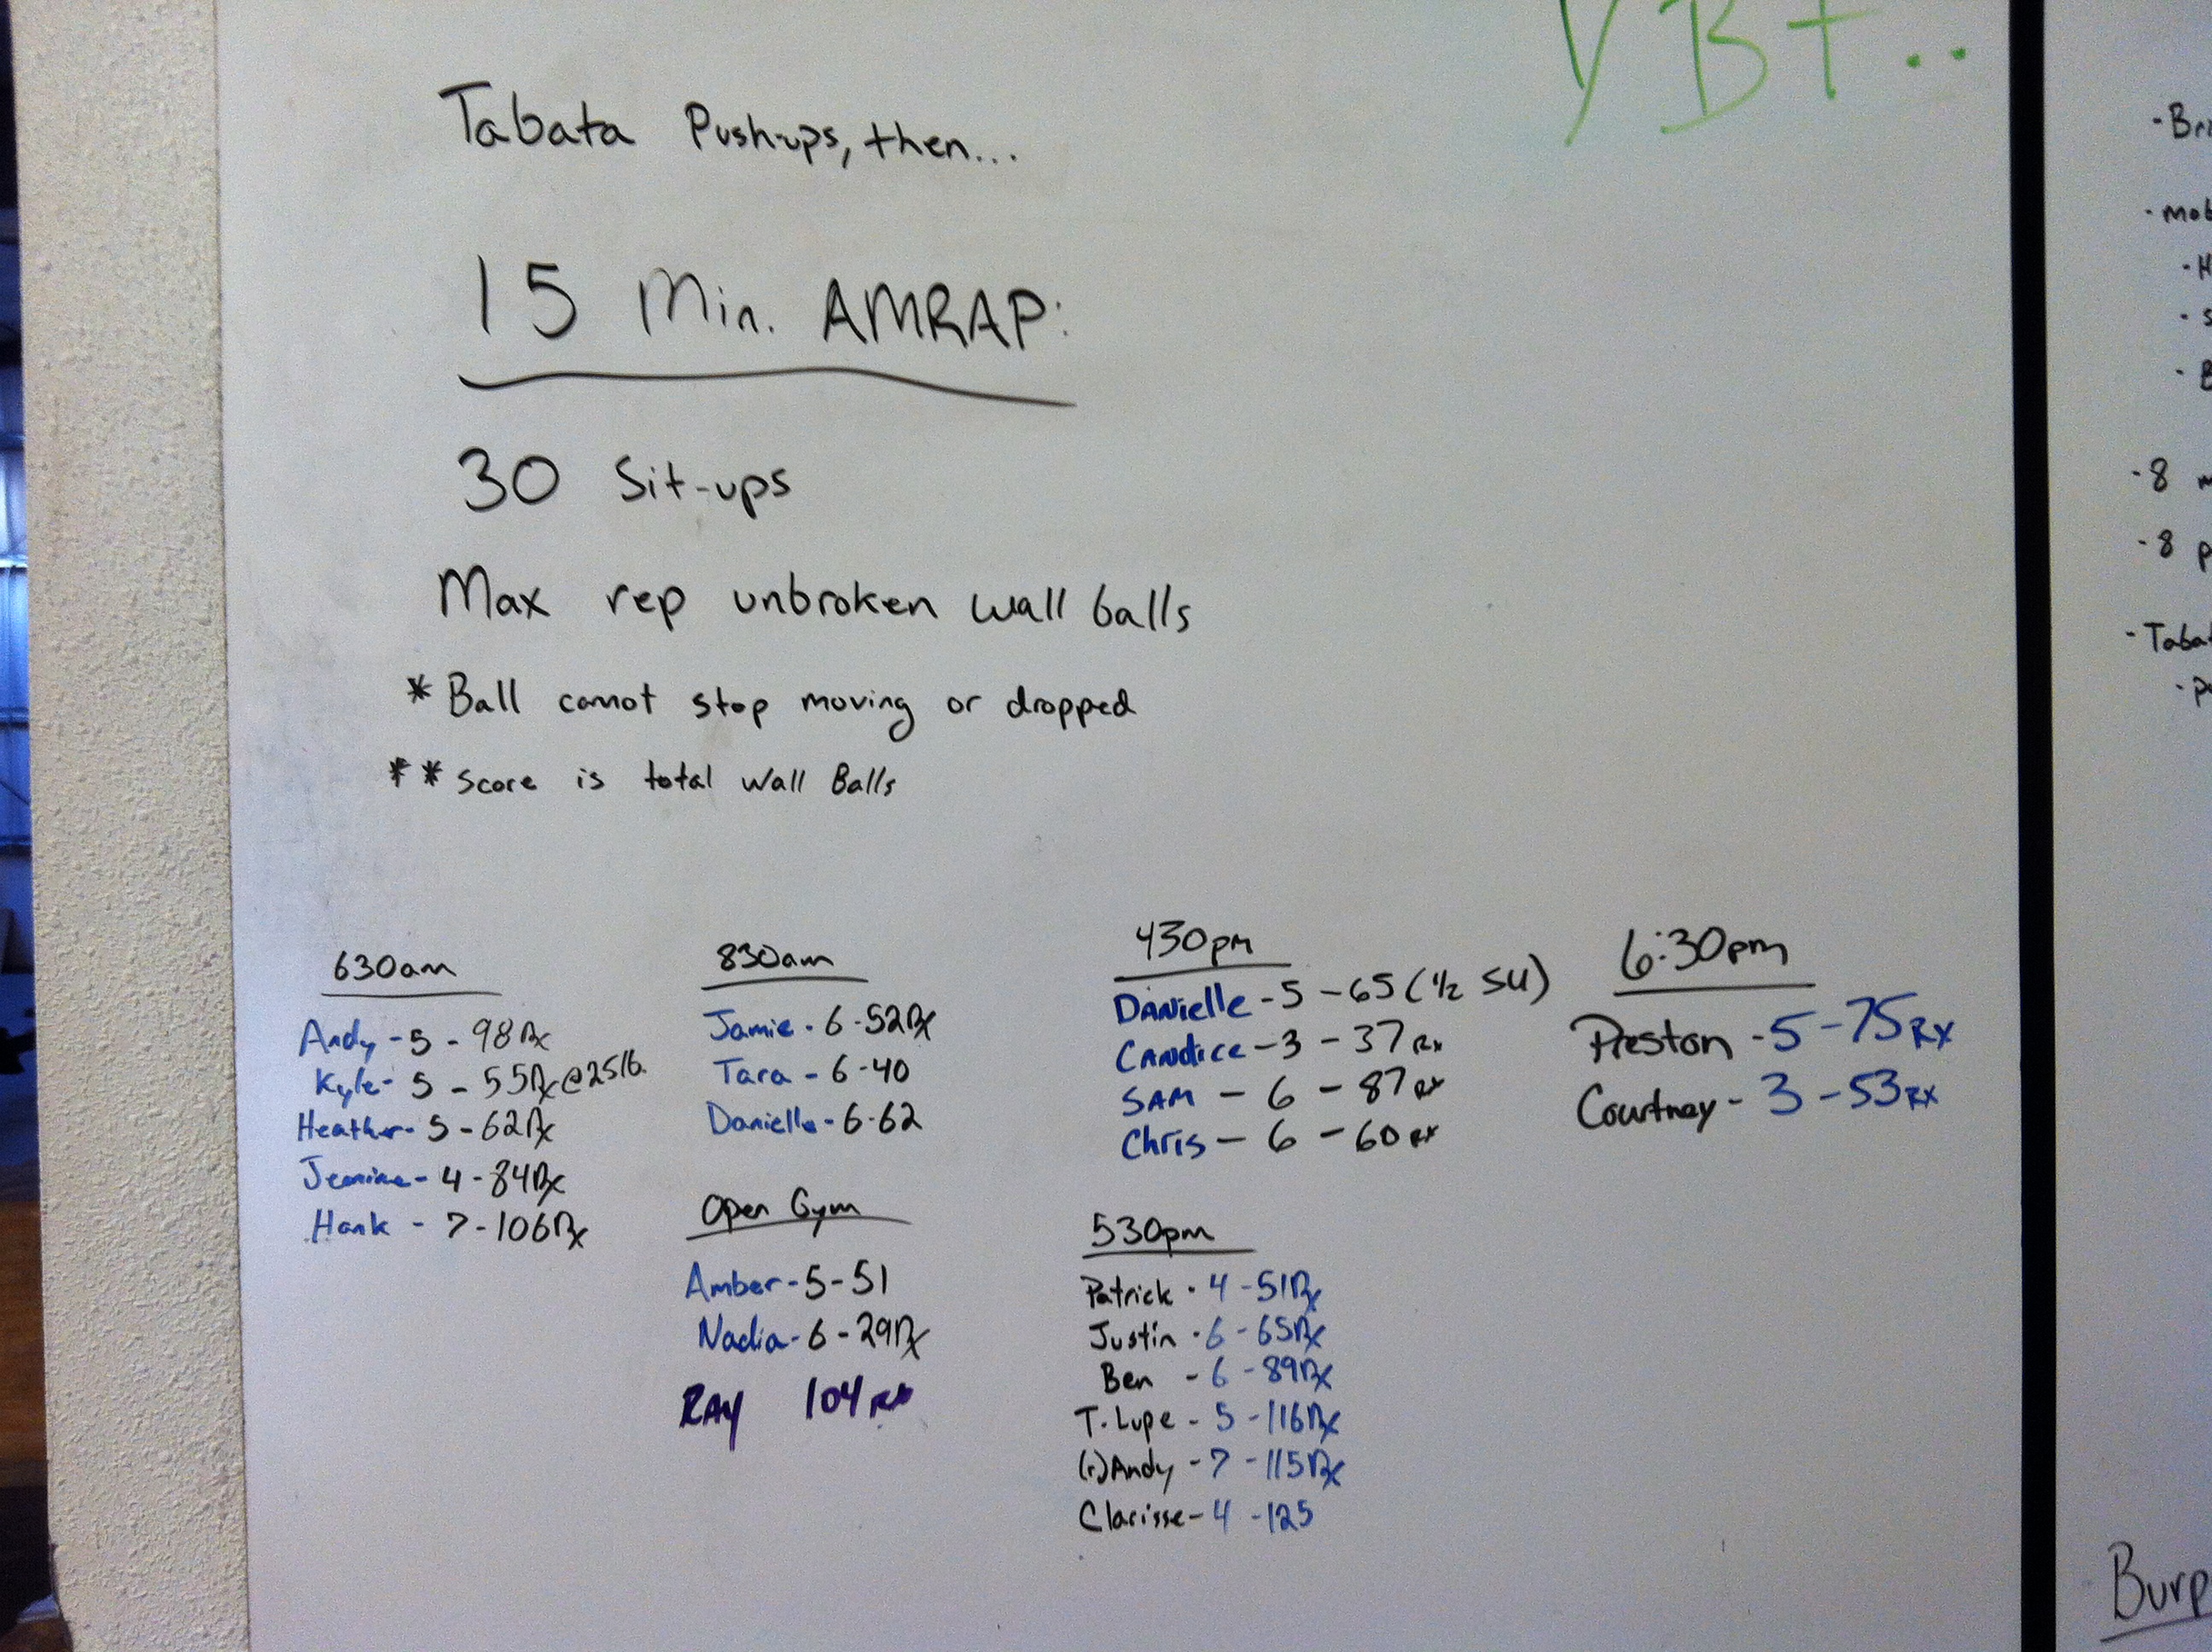 VB+..
Tabata Push-ups, then...
15 Min. AMRAP:
30 Sit-ups
Max rep unbroken wall balls
* Ball cannot stop moving or dropped
** Score is total Wall Balls
630am
Andy - 5 - 98 Rx
Kyle - 5 - 55 Rx @ 25lb.
Heather - 5 - 62 Rx
Jenine - 4 - 84 Rx
Hank - 7 - 106 Rx
830am
Jamie - 6 - 52 Rx
Tara - 6 - 40
Danielle - 6 - 62
Open Gym
Amber - 5 - 51
Nadia - 6 - 29 Rx
RAY 104 RX
430pm
Danielle - 5 - 65 (1/2 SU)
Candice - 3 - 37 Rx
SAM - 6 - 87 RX
Chris - 6 - 60 RX
530pm
Patrick - 4 - 51 Rx
Justin - 6 - 65 Rx
Ben - 6 - 89 Rx
T. Lupe - 5 - 116 Rx
(r) Andy - 7 - 115 Rx
Clarisse - 4 - 125
6:30pm
Preston - 5 - 75 RX
Courtney - 3 - 53 RX
- Bri
- mob
- H
- S
- B
- 8 m
- 8 p
- Tabat
- Pu
Burp